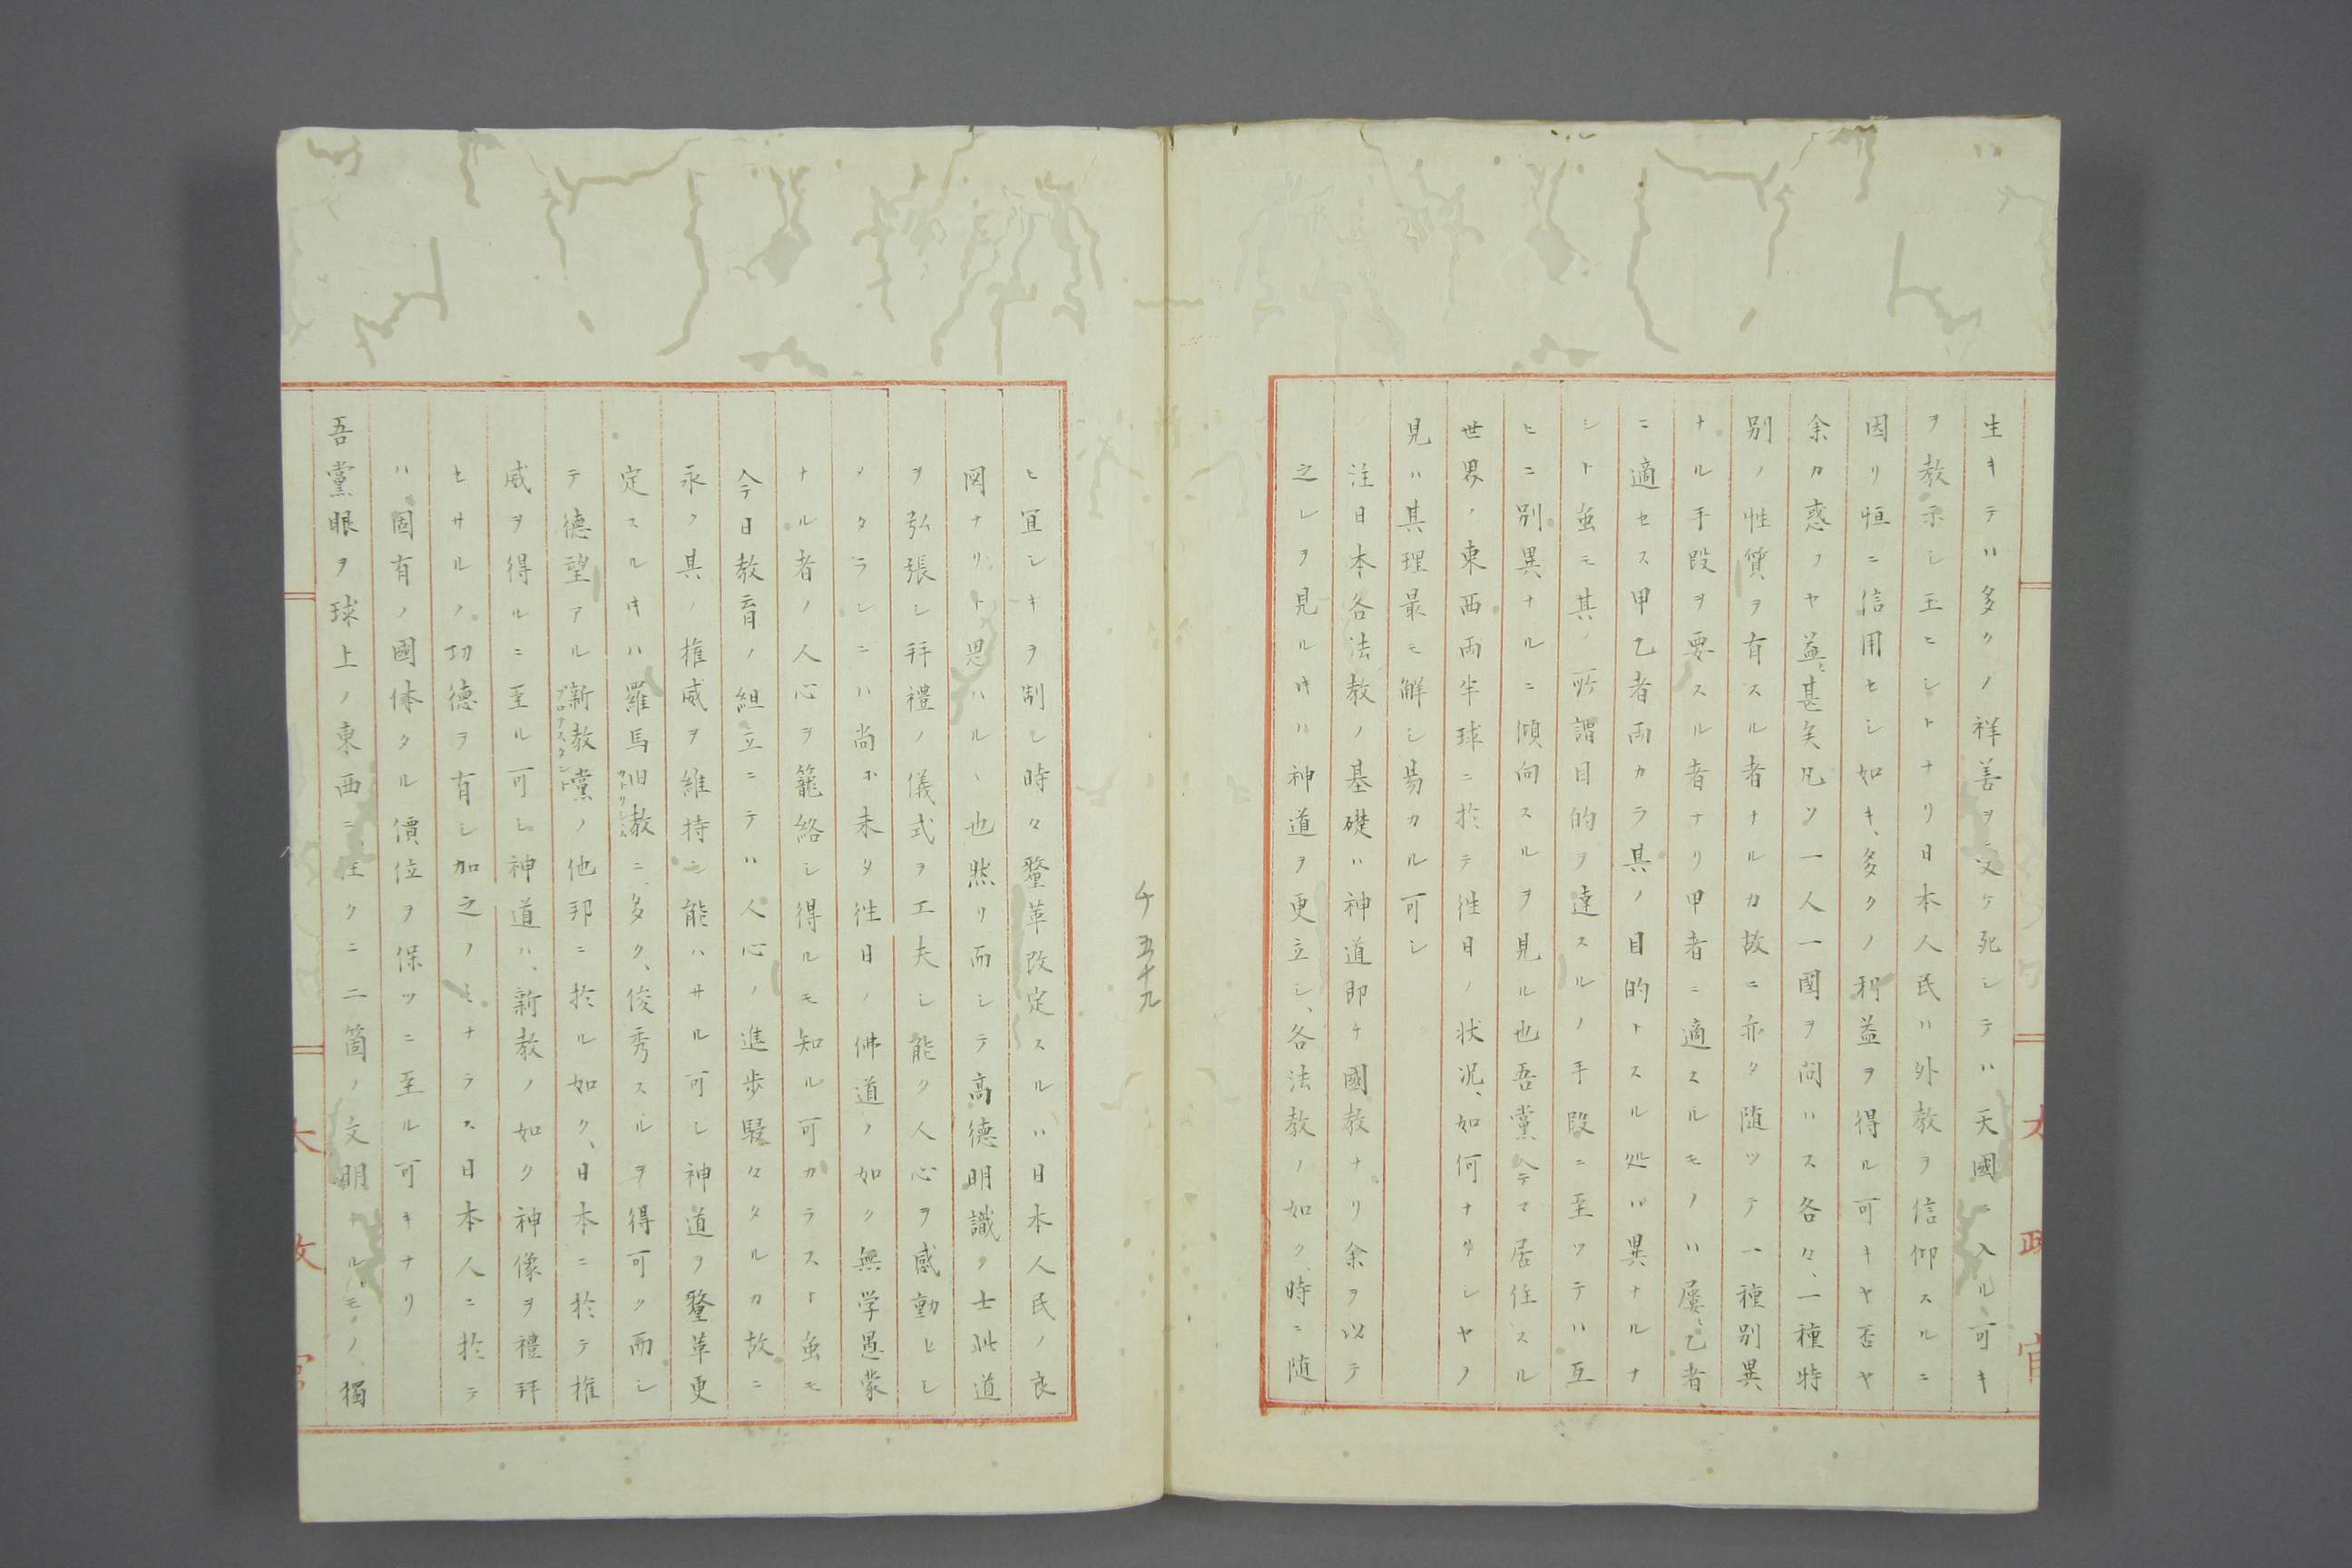 生キテハ多クノ祥善ヲ受ケ死シテハ天國ニ入ル可キ
ヲ教示シ玉ヒシトナリ日本人民ハ外教ヲ信仰スルニ
因リ恒ニ信用セシ如キ、多クノ利益ヲ得ル可キヤ否ヤ
余カ惑フヤ益〻甚矣凡ソ一人一國ヲ問ハス各々、一種特
別ノ性質ヲ有スル者ナルカ故ニ亦タ随ツテ一種別異
ナル手段ヲ要スル者ナリ甲者ニ適スルモノハ屢〻乙者
ニ適セス甲乙者両カラ其ノ目的トスル処ハ異ナルナ
シト虽モ其ノ所謂目的ヲ達スルノ手段ニ至ツテハ互
ヒニ別異ナルニ傾向スルヲ見ル也吾黨今マ居住スル
世界ノ東西両半球ニ於テ徃日ノ状况、如何ナリシヤノ
見ハ其理最モ解シ易カル可シ
注日本各法教ノ基礎ハ神道即チ國教ナリ余ヲ以テ
之レヲ見ルキハ神道ヲ更立シ、各法教ノ如ク、時ニ随
千五十九
ヒ宜シキヲ制シ時々釐革改定スルハ日本人民ノ良
図ナリト思ハル、也然リ而シテ高德明識ノ士此道
ヲ弘張シ拜禮ノ儀式ヲ工夫シ能ク人心ヲ感動セシ
メタランニハ尚ホ未タ徃日ノ佛道ノ如ク無学愚蒙
ナル者ノ人心ヲ籠絡シ得ルモ知ル可カラスト虽モ
今日教育ノ組立ニテハ人心ノ進歩駸々タルカ故ニ
永ク其ノ権威ヲ維持シ能ハサル可シ神道ヲ釐革更
定スルキハ羅馬旧教ニ、多ク、俊秀スルヲ得可ク而シ
テ德望アル新教黨ノ他邦ニ於ル如ク、日本ニ於テ権
威ヲ得ルニ至ル可シ神道ハ、新教ノ如ク神像ヲ禮拜
セサルノ功德ヲ有シ加之ノミナラス日本人ニ於テ
ハ固有ノ國体タル價位ヲ保ツニ至ル可キナリ
吾黨眼ヲ球上ノ東西ニ、注クニ二箇ノ文明ナルモノ、獨
太政官
太政官